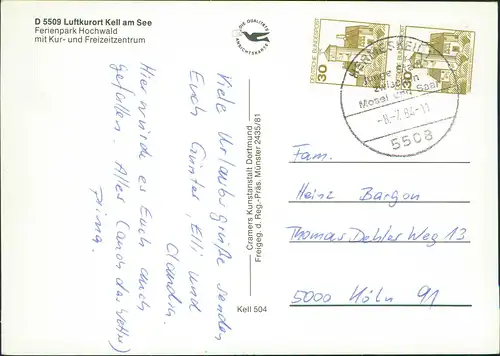 D 5509 Luftkurort Kell am See
Ferienpark Hochwald
mit Kur- und Freizeitzentrum
DIE QUALITÄTS
ANSICHTSKARTE
Viele Urlaubsgrüße senden
Euch Günter, Elli und
Claudia.
Hier würde es Euch auch
gefallen. Alles (auch das Wetter)
prima.
Cramers Kunstanstalt Dortmund
Freigeg. d. Reg.-Präs. Münster 2435/81
Kell 504
DEUTSCHE BUNDESPOST
30
DEUTSCHE BUNDESPOST
30
HERMESKEIL
zwischen
Mosel und Saar
-8.-7.84-11
5508
Fam.
Heinz Bargon
Thomas Dehler Weg 13
5000 Köln 91